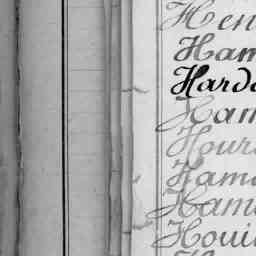 Hen
Ham
Hard
Ham
Hour
Ham
Ham
Houi